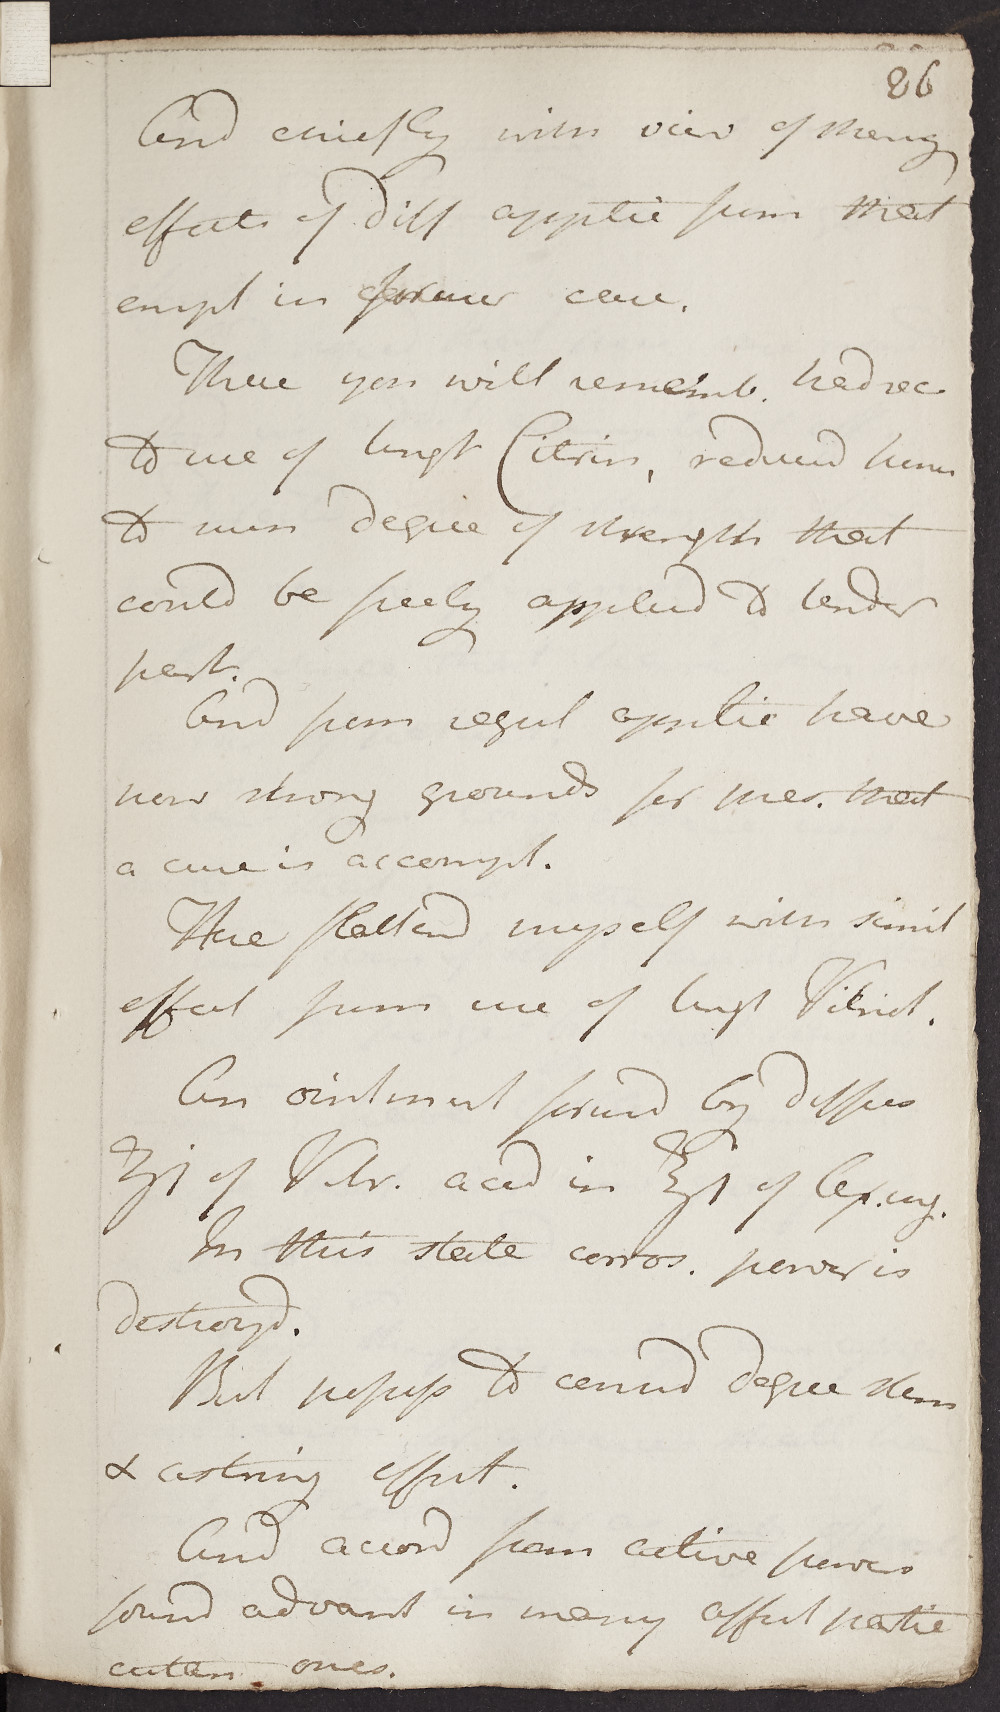 86
And chiefly with view of theng
effects of diff applic from that
empl in former case.
There you will rememb. had rec
to use of Ungt Citrin, reduced
to degree of strength that
could be freely applied to tender
part.
And from regul applic have
now strong grounds for that
a cure is accompl.
Here flatterd myself with simil
effect from use of Ungt Vitriol.
An ointment formd by diffus
ʒj of Vitr. acid in ℥j of Ax. ung.
In this state corros. power is
destroyd.
But possess to considd degree stim
& astring effect.
And accord from active powers
found advant in many affect partic
cutan ones.